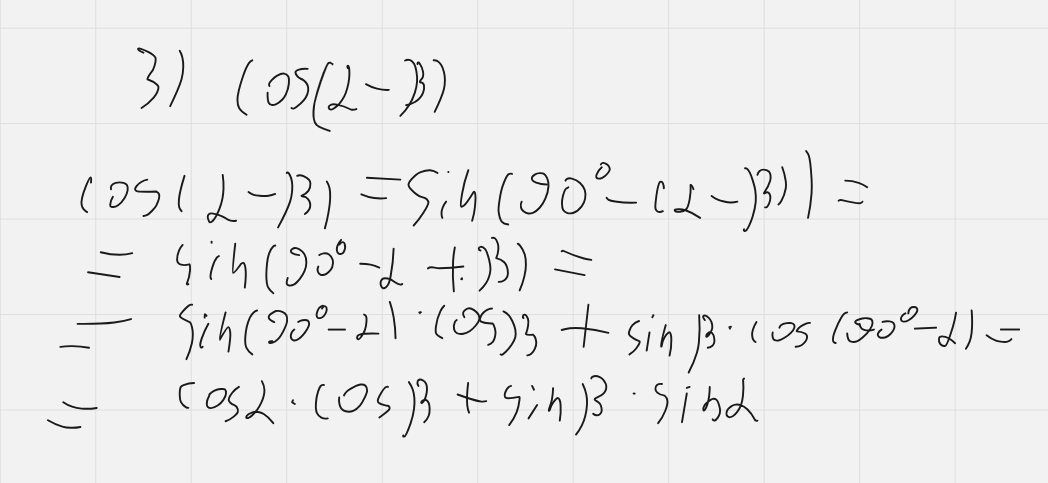 3) cos(α-β)
cos(α-β) = sin(90°-(α-β)) =
= sin(90°-α+β) =
= sin(90°-α)·cosβ + sinβ·cos(90°-α) =
= cosα·cosβ + sinβ·sinα